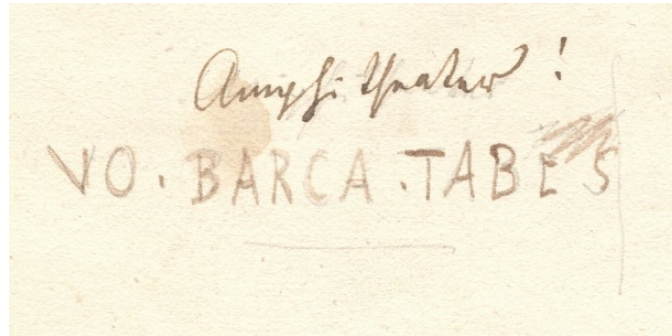 Amphitheater!
VO. BARCA.TABES